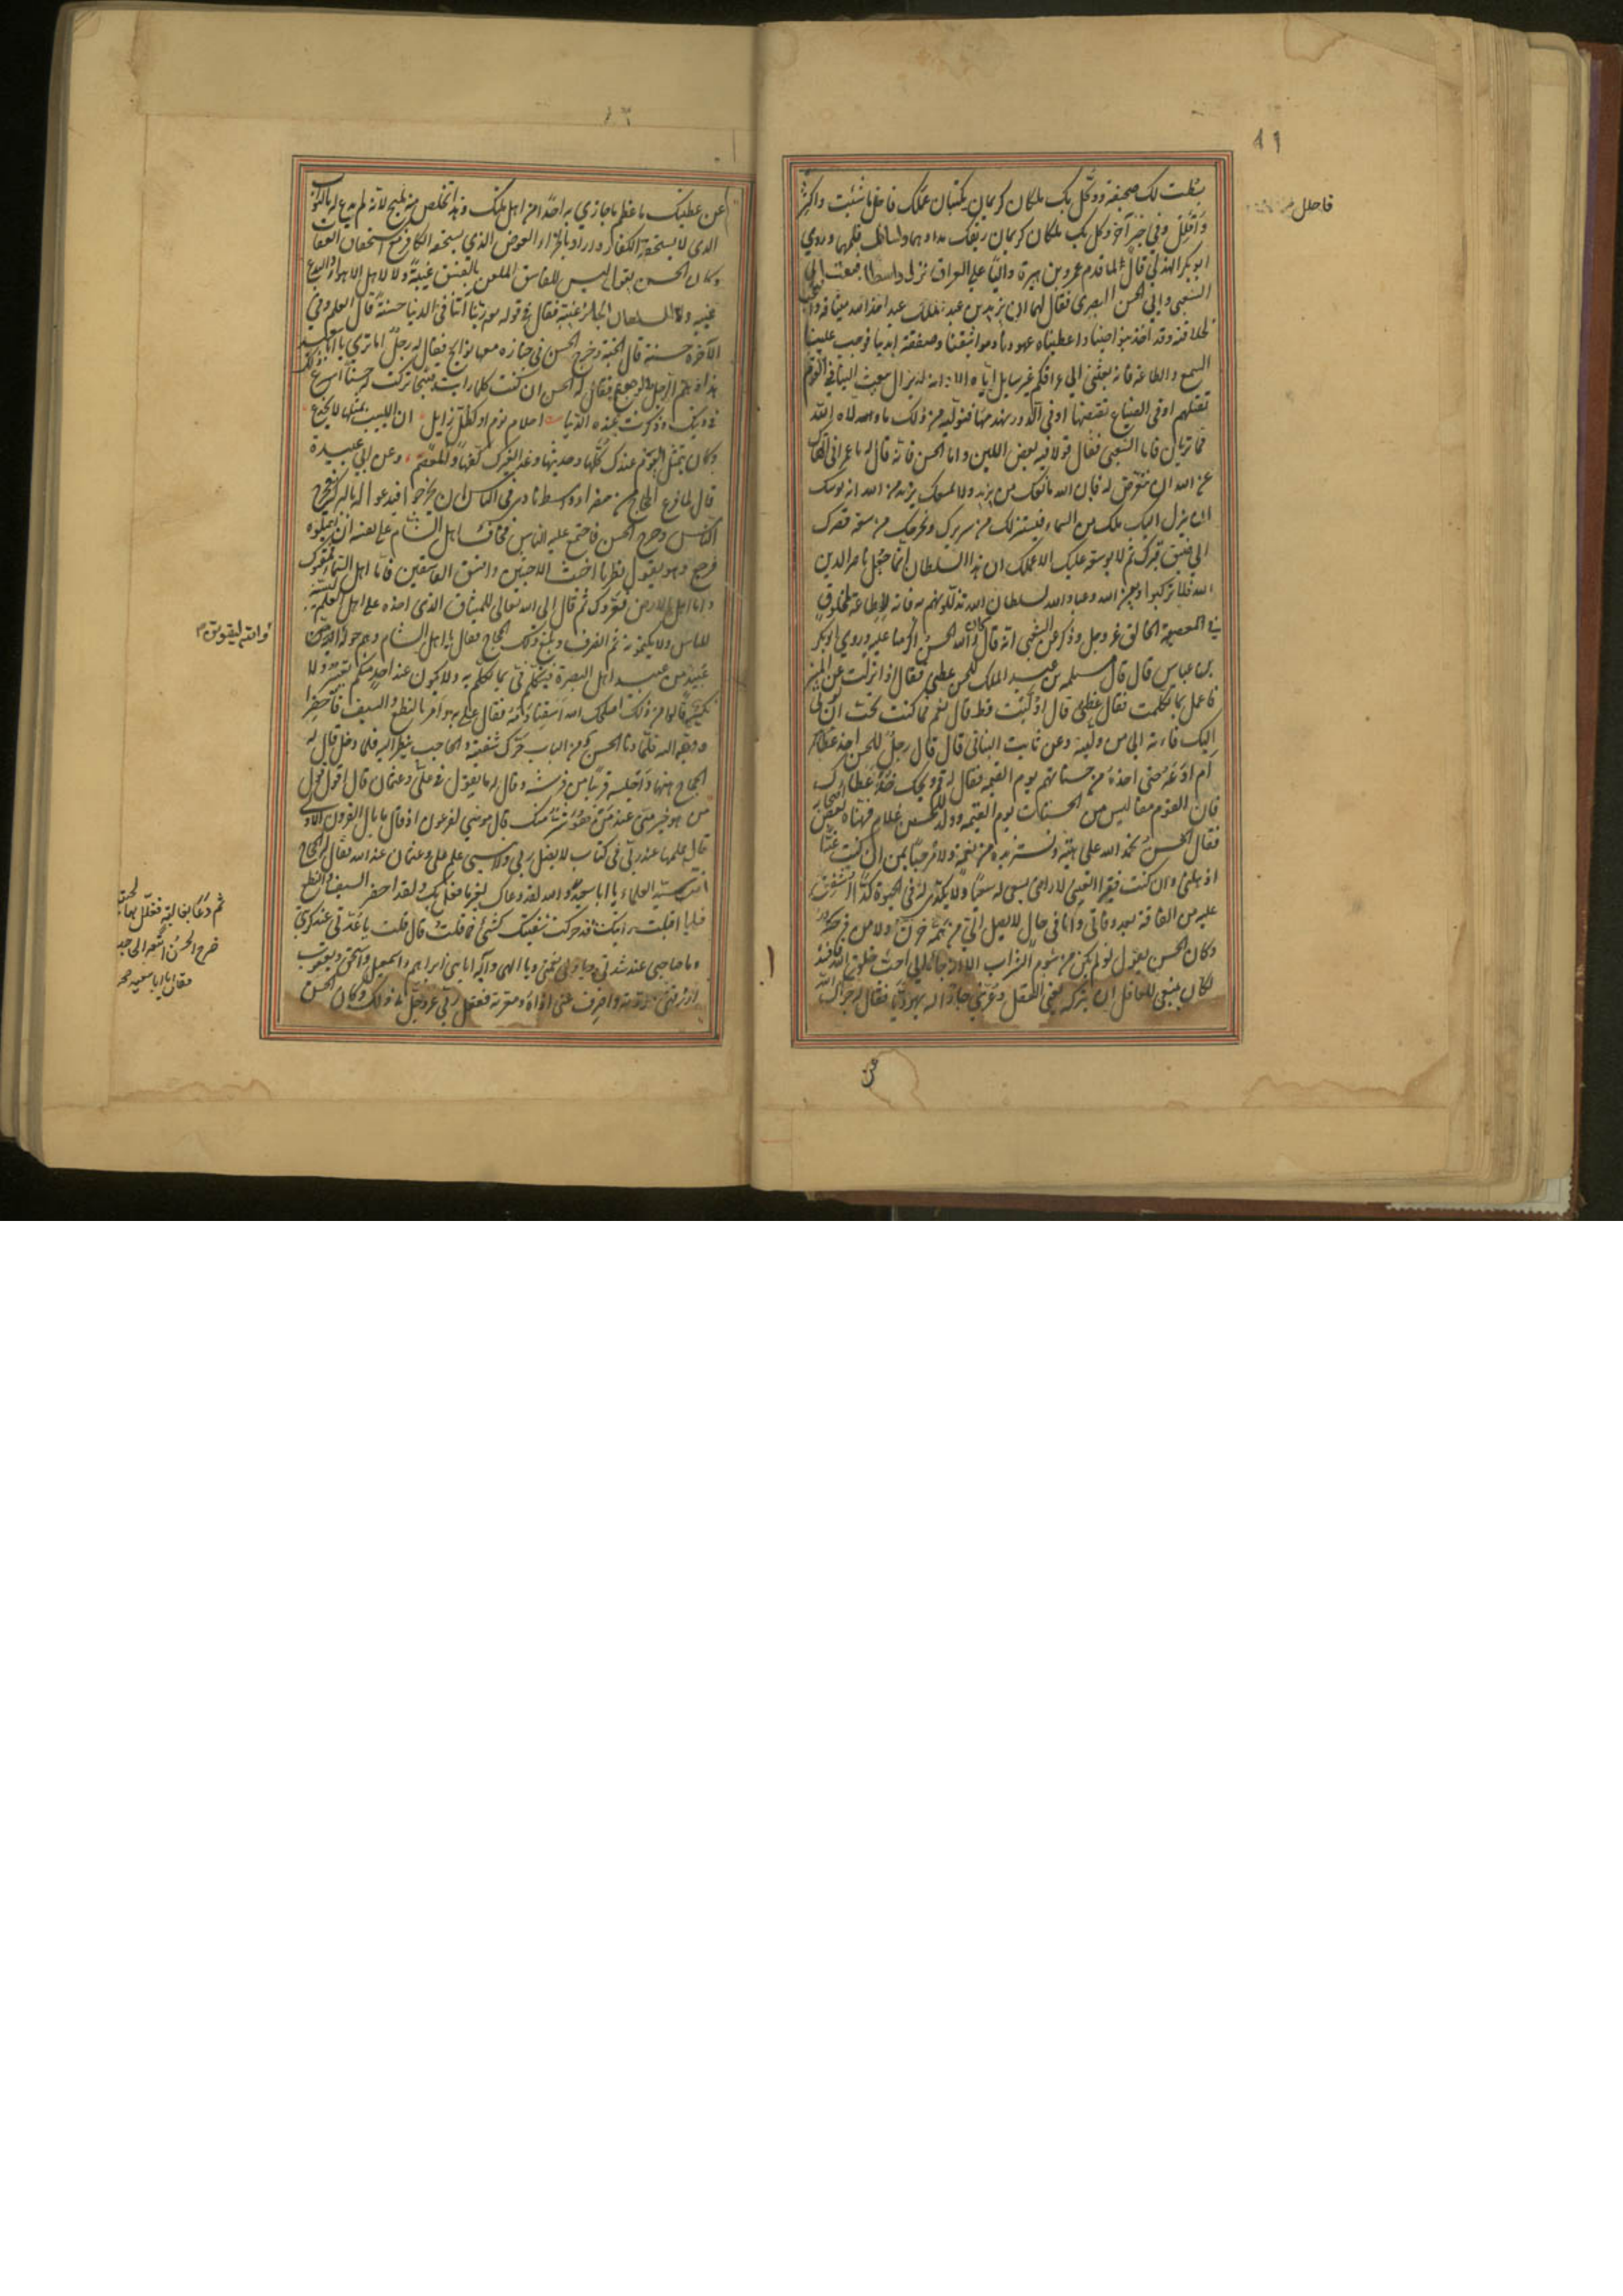 بسطت لك صحيفة ووكّل بك ملكان كريمان يكتبان عملك فاعمل ما شئت واكثر
وأقلل وفي خبر آخر وكل بك ملكان كريمان ريقك مدادهما ولسانك قلمهما وروى
ابو بكر الهذلي قال لما قدم عمرو بن هبيرة واليا على العراق نزل واسطا فبعث الى
الشعبي والى الحسن البصرى فقال لهما ان يزيد بن عبد الملك عبد اخذ الله ميثاقه
لخلافته وقد اخذ بنواصينا واعطيناه عهودنا ومواثيقنا وصفقة ايدينا فوجب علينا
السمع والطاعة فانه بعثني الى عراقكم غير سايل اياه الا انه لا يزال يبعث الينا في القوم
نقتلهم او في الضياع نقبضها او في الدور نهدمها فنوليه من ذلك ما ولاه الله
فما تريان فاما الشعبي فقال قولا فيه بعض اللين واما الحسن فانه قال يا عمر اني انهاك
عن الله ان تتعرض له فان الله مانعك من يزيد ولا يمنعك يزيد من الله انه يوشك
ان ينزل اليك ملك من السماء فيستنزلك من سريرك ويخرجك من سعة قصرك
الى ضيق قبرك ثم لا يوسعه عليك الا عملك ان هذا السلطان انما جعل ناصرا لدين
الله فلا تركبوا دين الله وعباد الله لسلطان الله تذلّونهم به فانه لا طاعة لمخلوق
في معصية الخالق عز وجل وذكر عن الشعبي انه قال كان والله الحسن اكرمنا عليه وروى ابو بكر
بن عياش قال قال مسلمة بن عبد الملك للحسن عظني فقال اذا نزلت عن المنبر
فاعمل بما تكلمت فقال عظني قال أوليت قط قال نعم فما كنت تحب ان يؤتى
اليك فاته الى من وليته وعن ثابت البناني قال قال رجل للحسن اخذ عطائي
أم ادعه حتى اخذه من حسناتهم يوم القيمة فقال له قم ويحك خذ عطاءك
فان القوم مفاليس من الحسنات يوم القيمة وولد للحسن غلام فهنّاه بعض اصحابه
فقال الحسن نحمد الله على هبته ونستزيده من نعمه ولا مرحبا بمن ان كنت غنيا
اذهلني وان كنت فقيرا اتعبني لا ارضى بسعي له سعيا ولا بكدّي له في الحيوة كدّا اشفق
عليه من الفاقة بعد وفاتي وانا في حال لا يصل الي من همه حزن ولا من فرحه سرور
وكان الحسن يقول لو لم يكن من شوم الشراب الا انه جاء الى احبّ خلق الله فافسده
لكان ينبغي للعاقل ان يتركه يعني العقل وعزّى جارا له يهوديا فقال له جزاك الله
فاعمل
عن
عن عطيتك ما عظم ما جازي به احدا من اهل ملتك وهذا تخلص منه مليح لانه لم يدع له بالثواب
الذي لا يستحقه الكفار واراد بالجزاء العوض الذي يستحقه الكافر مع استحقاق العقاب
وكان الحسن يقول ليس للفاسق المعلن بالفسق غيبة ولا لاهل الاهواء والبدع
غيبة ولا للسلطان الجائر غيبة فقال في قوله ربنا آتنا في الدنيا حسنة قال العلم وفي
الآخرة حسنة قال الجنة وخرج الحسن في جنازة معها نوائح فقال له رجل أما ترى يا ابا سعيد
هذا وهم الرجل بالرجوع فقال له الحسن ان كنت كلما رايت قبيحا تركت حسنا اسرع ذلك
في دينك وذكرت عنده الدنيا فقال احلام نوم او كظل زايل ان اللبيب بمثلها لا يخدع
وكان يتمثل اليوم عندك دلها وحديثها وغدا لغيرك كفها والمعصم وعن ابي عبيدة
قال لما فرغ الحجاج من خضراء واسط نادى في الناس ان يخرجوا فيدعوا له بالبركة فخرج
الناس وخرج الحسن فاجتمع عليه الناس فخاف اهل الشام على نفسه ان يقتلوه
فرجع وهو يقول نظرنا يا اخبث الاخبثين وافسق الفاسقين فاما اهل السماء فمقتوك
واما اهل الارض فغروك ثم قال ابى الله تعالى للميثاق الذي اخذه على اهل العلم ليبيننه
للناس ولا يكتمونه ثم انصرف وبلغ ذلك الحجاج فقال يا اهل الشام وهم حوله
عبيد من عبيد اهل البصرة يتكلم فيّ بما تكلم به ولا يكون عند احد منكم تغيير ولا
نكير قالوا من ذلك اصلحك الله اسقنا دمه فقال عليّ به وامر بالنطع والسيف فاحضرا
ووجّه اليه فلما دنا الحسن من الباب حرّك شفتيه والحاجب ينظر اليه فلما دخل قال له
الحجاج ههنا واجلسه قريبا من فرشه وقال له ما تقول في علي وعثمان قال اقول قول
من هو خير مني عند من هو شر منك قال موسى لفرعون اذ قال ما بال القرون الاولى
قال علمها عند ربي في كتاب لا يضل ربي ولا ينسى علم علي وعثمان عند الله فقال له الحجاج
انت سيد العلماء يا ابا سعيد والله لقد دعاك لغير ما فعل بك ولقد احضر السيف والنطع
فلما اقبلت رايتك قد حركت شفتيك بشئ فما قلت قال قلت يا عدتي عند كربتي
ويا صاحبي عند شدتي ويا ولي نعمتي ويا الهي واله ابائي ابراهيم واسمعيل واسحق ويعقوب
ارزقني مودته واصرف عني اذاه ومعرته ففعل ربي عز وجل ذلك وكان الحسن
والله ليقومن
ثم دعا بغالية فغلّل بها لحيته
خرج الحسن اتبعه الحاجب
فقال يا ابا سعيد